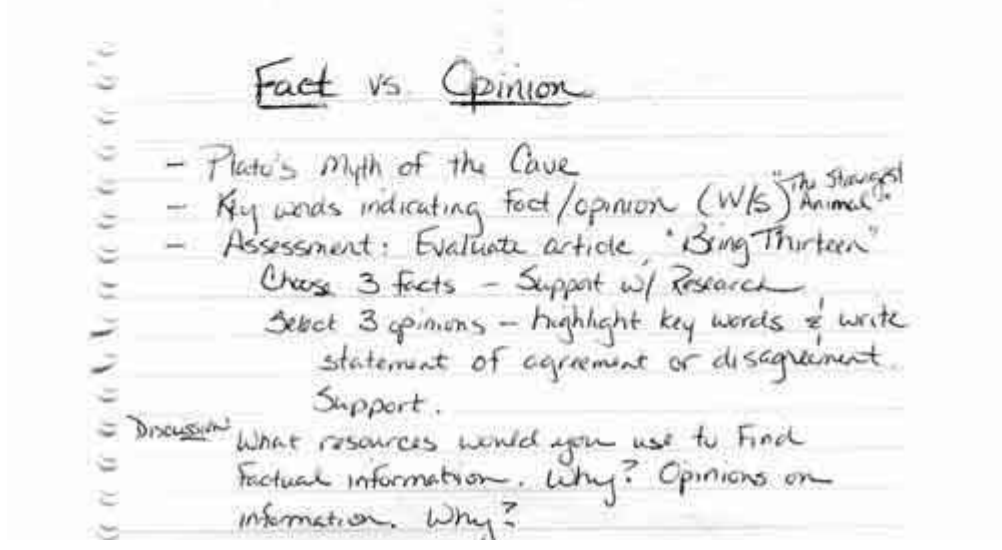 Fact vs. Opinion
- Plato's Myth of the Cave
- Key words indicating fact/opinion (W/S) "The Strangest Animal"
- Assessment: Evaluate article, "Being Thirteen"
Choose 3 facts - Support w/ Research
Select 3 opinions - highlight key words & write
statement of agreement or disagreement.
Support.
Discussion: What resources would you use to find
factual information. Why? Opinions on
information. Why?